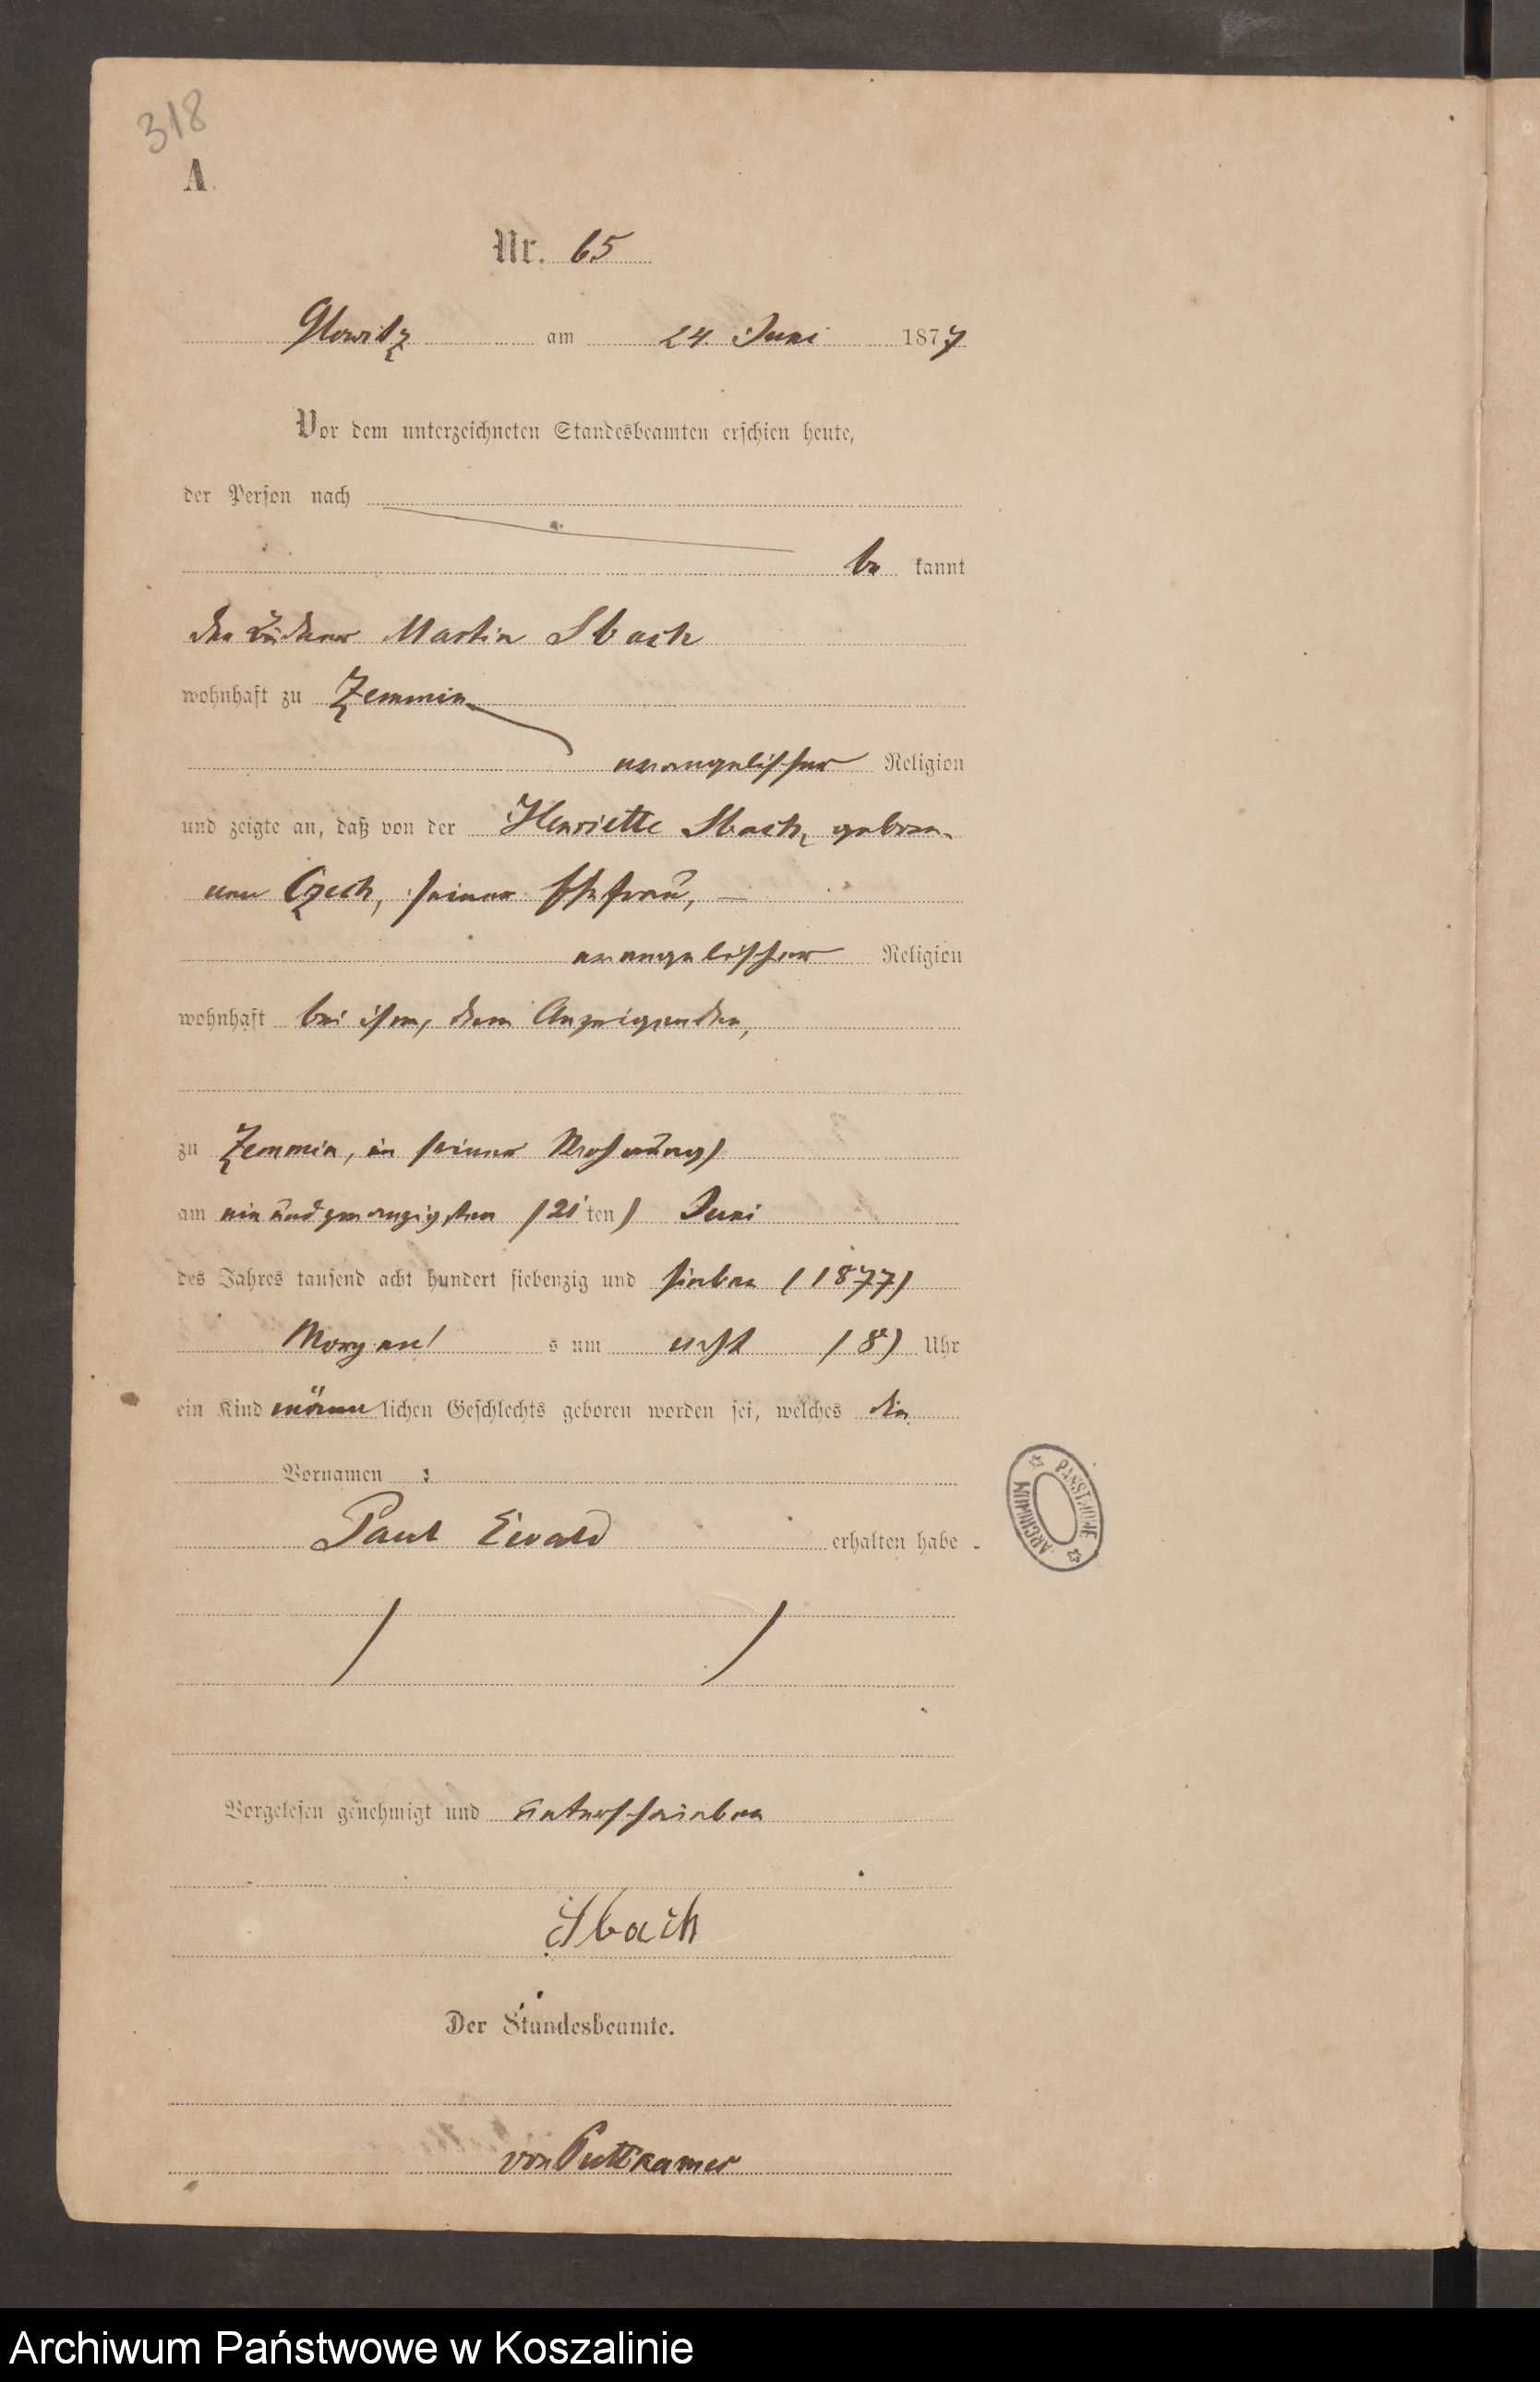 318
A.
Nr. 65
Glowitz am 24. Juni 1877
Vor dem unterzeichneten Standesbeamten erschien heute,
der Person nach
be kannt
der Büdner Martin Sbach
wohnhaft zu Zemmin
evangelischer Religion
und zeigte an, daß von der Henriette Sbach, gebore-
nen Czech, seiner Ehefrau, —
evangelischer Religion
wohnhaft bei ihm, dem Anzeigenden,
zu Zemmin, in seiner Wohnung
am einundzwanzigsten (21 ten) Juni
des Jahres tausend acht hundert siebenzig und sieben (1877)
Morgen s um acht (8) Uhr
ein Kind männ lichen Geschlechts geboren worden sei, welches die
Vornamen :
Paul Ewald erhalten habe .
ARCHIWUM PAŃSTWOWE
Vorgelesen genehmigt und unterschrieben
Sbach
Der Standesbeamte.
von Puttkamer
Archiwum Państwowe w Koszalinie